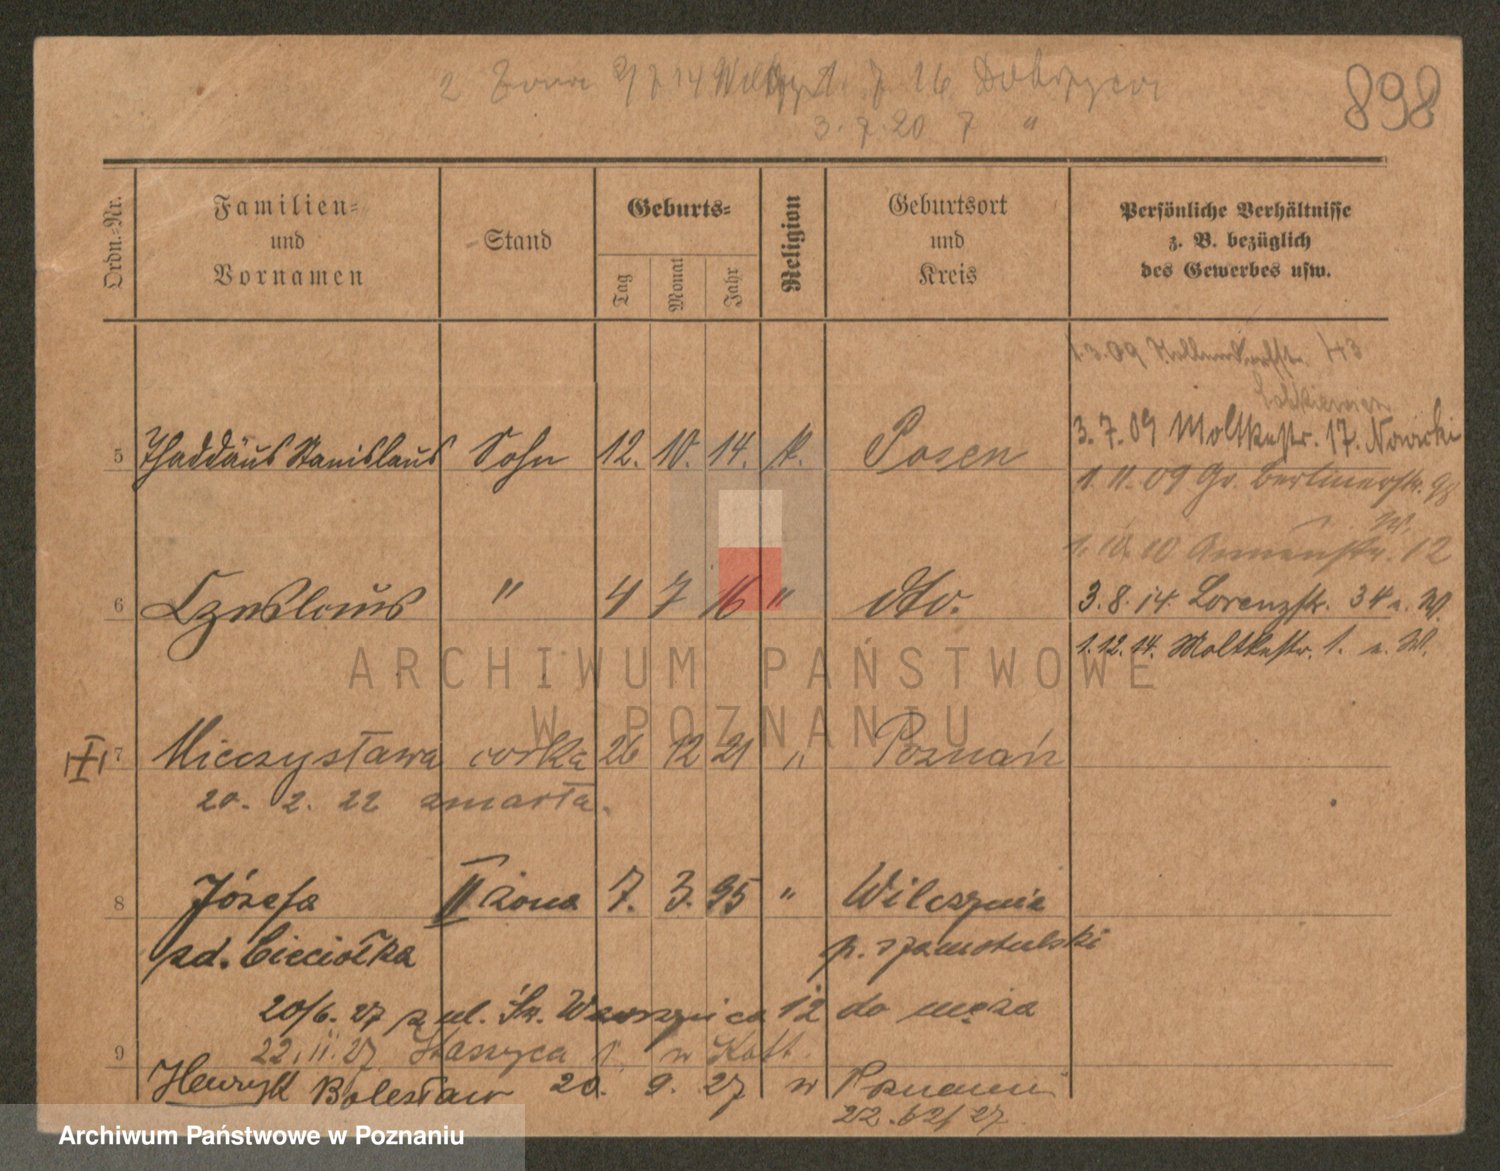 898
3. 7. 20 7 "
Ordn.-Nr.
Familien-
und
Vornamen
Stand
Geburts-
Tag
Monat
Jahr
Religion
Geburtsort
und
Kreis
Persönliche Verhältnisse
z. B. bezüglich
des Gewerbes usw.
1.3.09 43
3.7.09 Moltkestr. 17. Nowicki
5 Thaddäus Stanislaus Sohn 12. 10. 14. k. Posen
1.11.09 Gr. Berlinerstr. 98
W.
1.10.10 Annenstr. 12
6 Czeslaus " 4 7 16 " dto.
3.8.14. Lorenzstr. 34 a. W.
1.12.14. Moltkestr. 1. a. W.
ARCHIWUM PAŃSTWOWE
W POZNANIU
7 Mieczysława córka 26 12 21 " Poznań
20. 2. 22 zmarła.
8 Józefa II żona 7. 3. 95 "
zd. Cieciołka p. szamotulski
20/6. 27 z ul. Św. Wawrzyńca 12 do męża
22.11.27 Staszyca 1
9
Henryk Bolesław 20. 9. 27 w Poznaniu
Archiwum Państwowe w Poznaniu